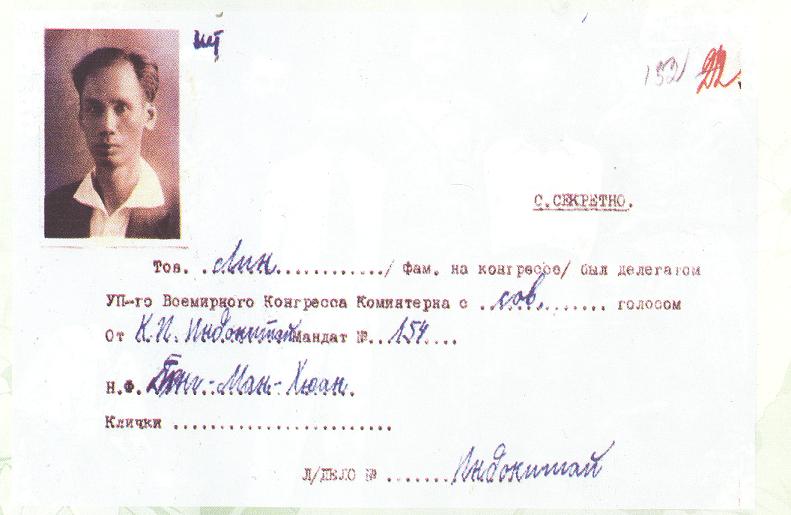 132/ 22.
С. СЕКРЕТНО.
Тов. ..Лин............/ фам. на конгрессе/ был делегатом
УП-го Всемирного Конгресса Коминтерна с ..сов....... голосом
От К.П. Индокитай Мандат №..154....
Н.Ф. -Ман-Хюан.
Клички ........................
Л/ДЕЛО № .......Индокитай